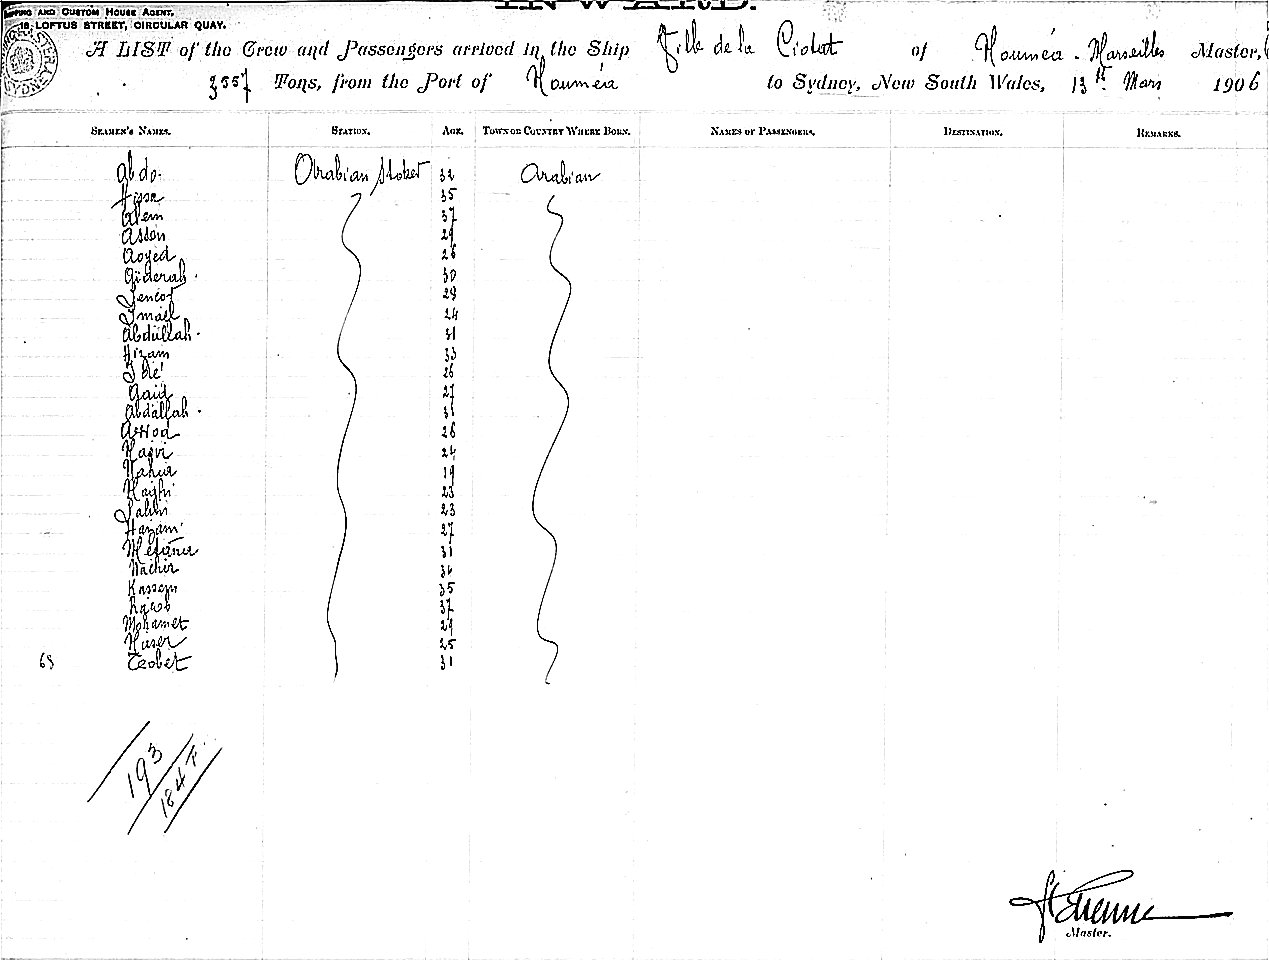 AND CUSTOM HOUSE AGENT,
16, LOFTUS STREET, CIRCULAR QUAY.
INWARD.
A LIST of the Crew and Passengers arrived in the Ship Ville de la Ciotat of Nouméa - Marseilles Master,
3557 Tons, from the Port of Nouméa to Sydney, New South Wales, 13th Mars 1906
SEAMEN'S NAMES. STATION. AGE. TOWN OR COUNTRY WHERE BORN. NAMES OF PASSENGERS. DESTINATION. REMARKS.
Abdo. Arabian Stoker 32 Arabian
Hissa 35
Glem 37
Assen 29
Aoyed 26
Giderah. 30
29
Smaël 24
Abdullah. 31
Hizam 33
26
Gaid 27
Abdallah. 31
26
Nagi 24
19
23
Salem 23
Hazam 27
31
Nachir
Kassem 35
Rajeb 37
Mohamet 29
Naser 25
63 Teobet 31
193
184
Etienne
Master.